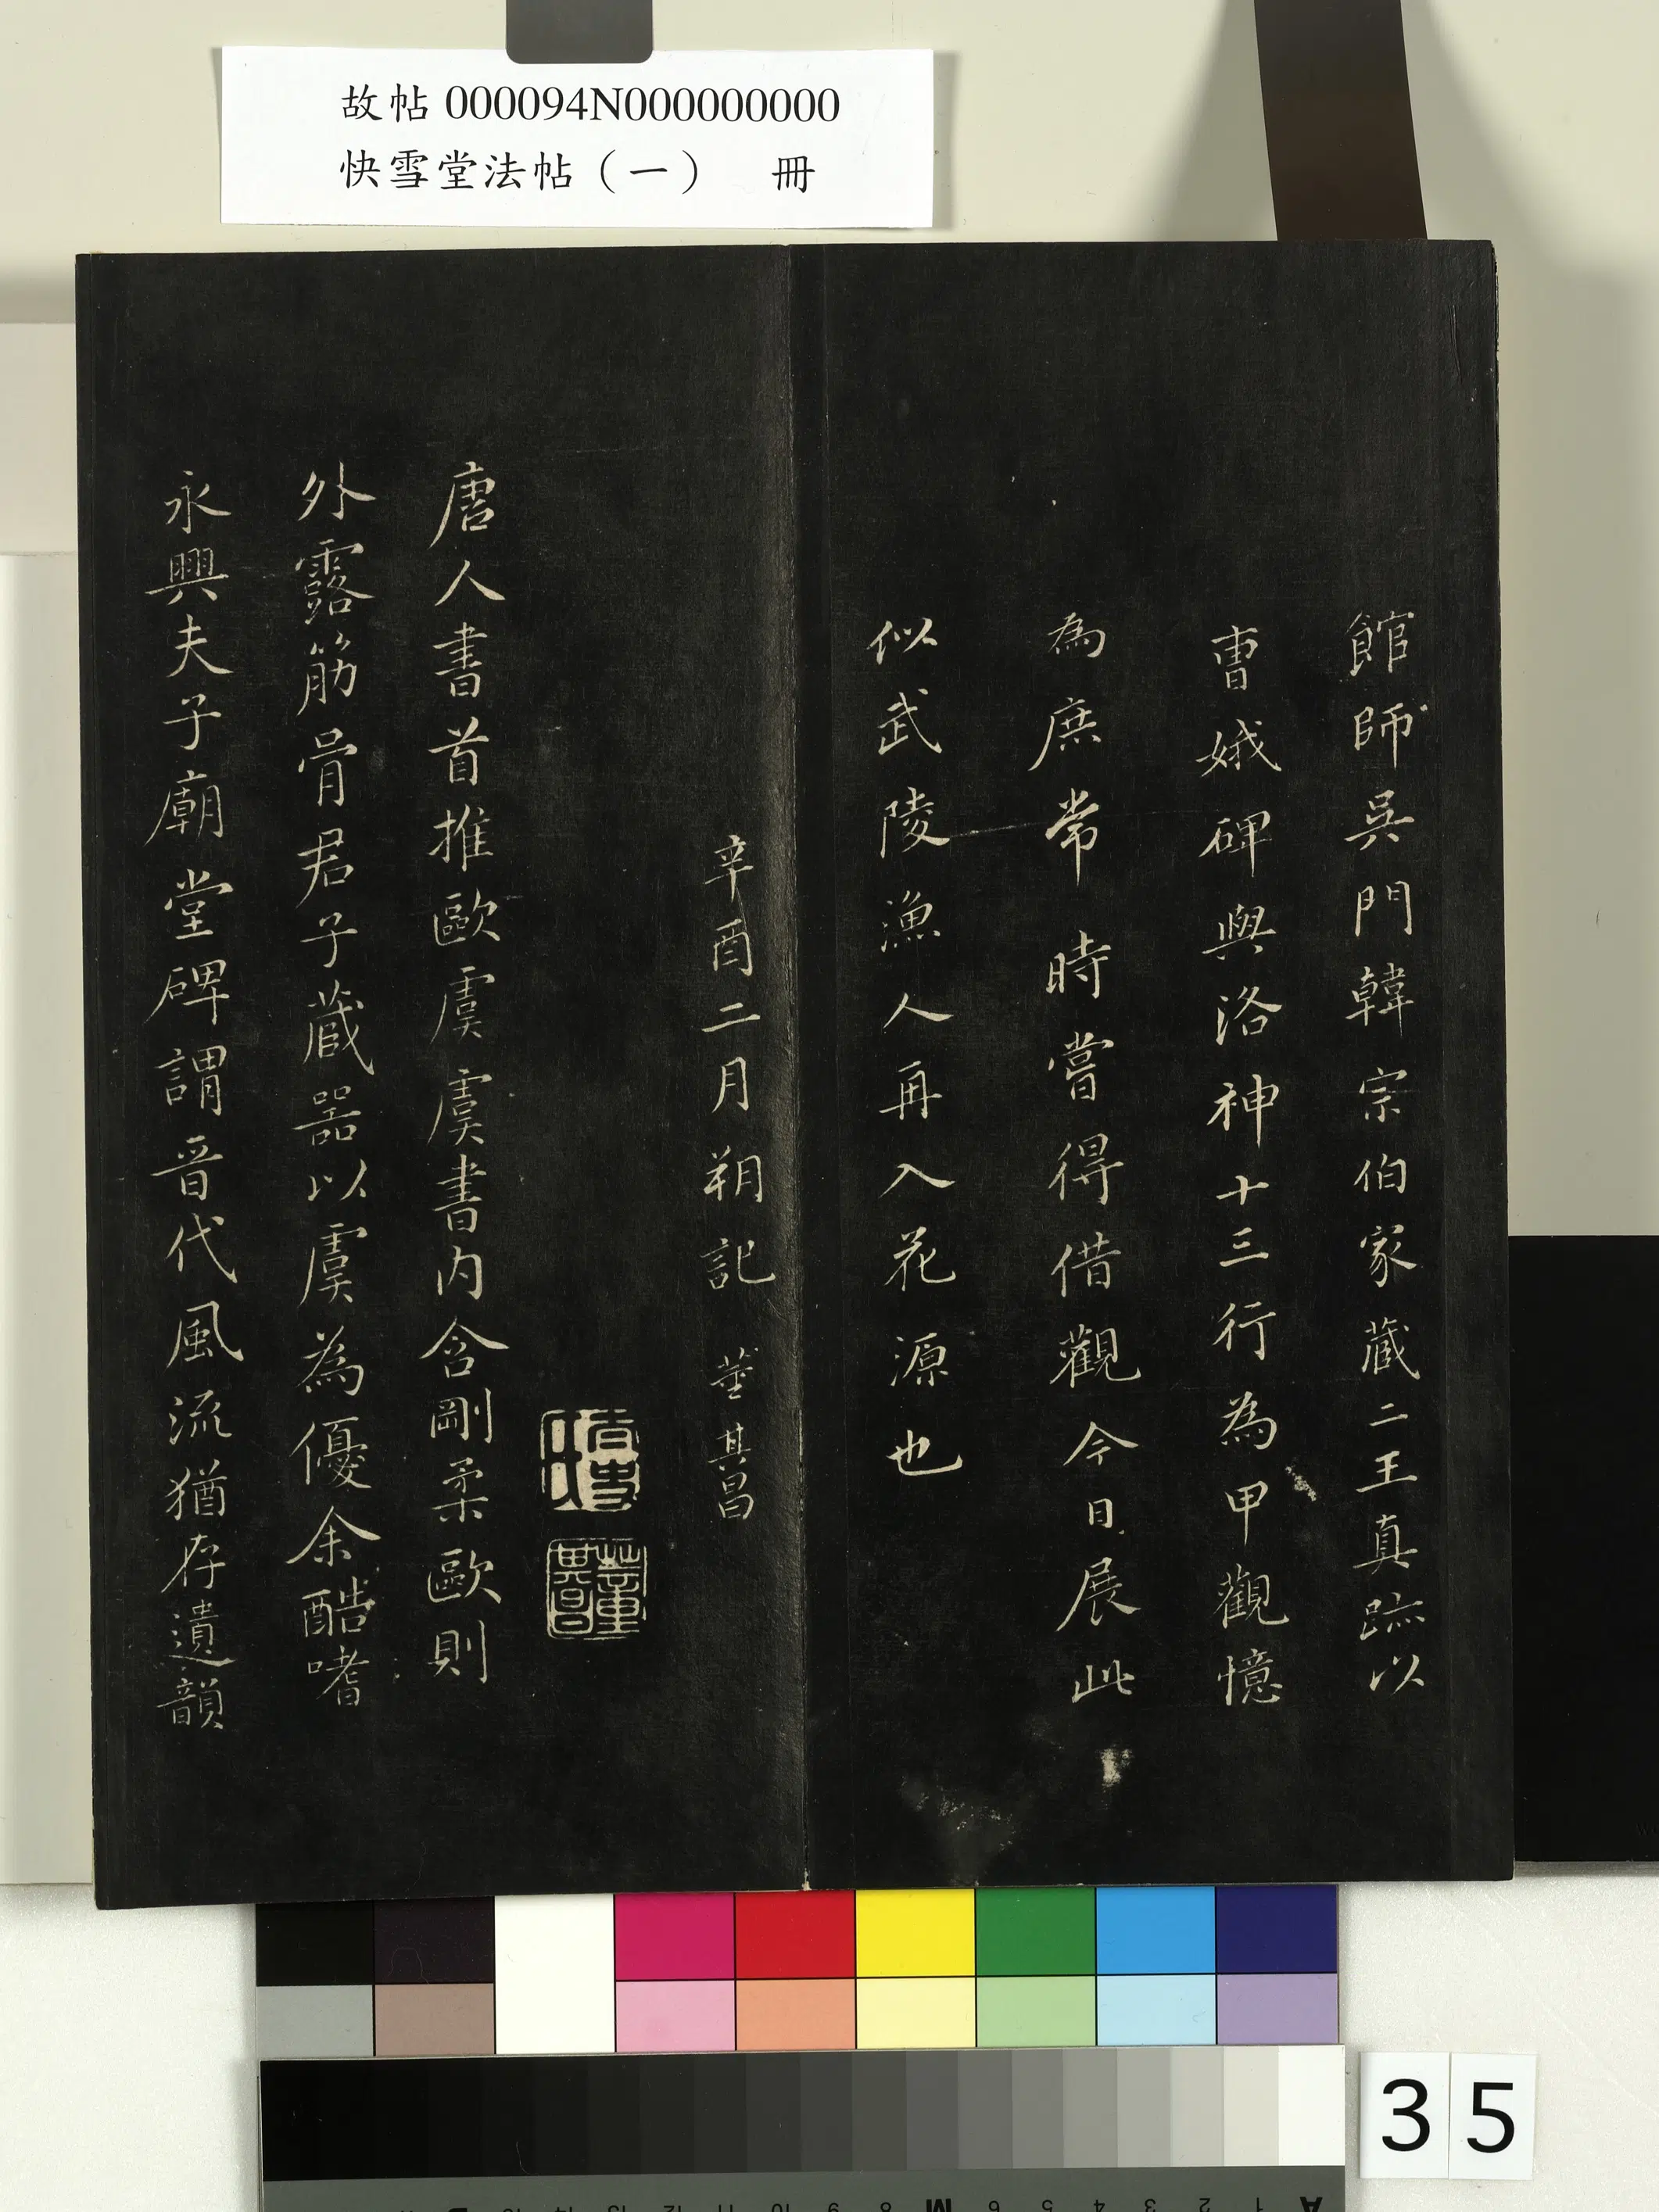 故帖000094N000000000
快雪堂法帖（一） 冊
館師吳門韓宗伯家藏二王真跡以
曹娥碑與洛神十三行為甲觀憶
為庶常時嘗得借觀今日展此
似武陵漁人再入花源也
辛酉二月朔記 董其昌
董其昌
唐人書首推歐虞虞書内含剛柔歐則
外露筋骨君子藏器以虞為優余酷嗜
永興夫子廟堂碑謂晉代風流猶存遺韻
35